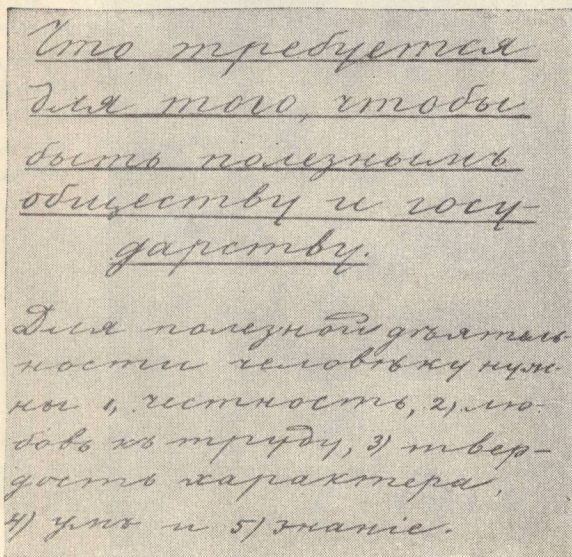 Что требуется
для того, чтобы
быть полезнымъ
обществу и госу-
дарству.
Для полезной дѣятель-
ности человѣку нуж-
ны 1, честность, 2) лю-
бовь къ труду, 3) твер-
дость характера,
4) умъ и 5) знаніе.